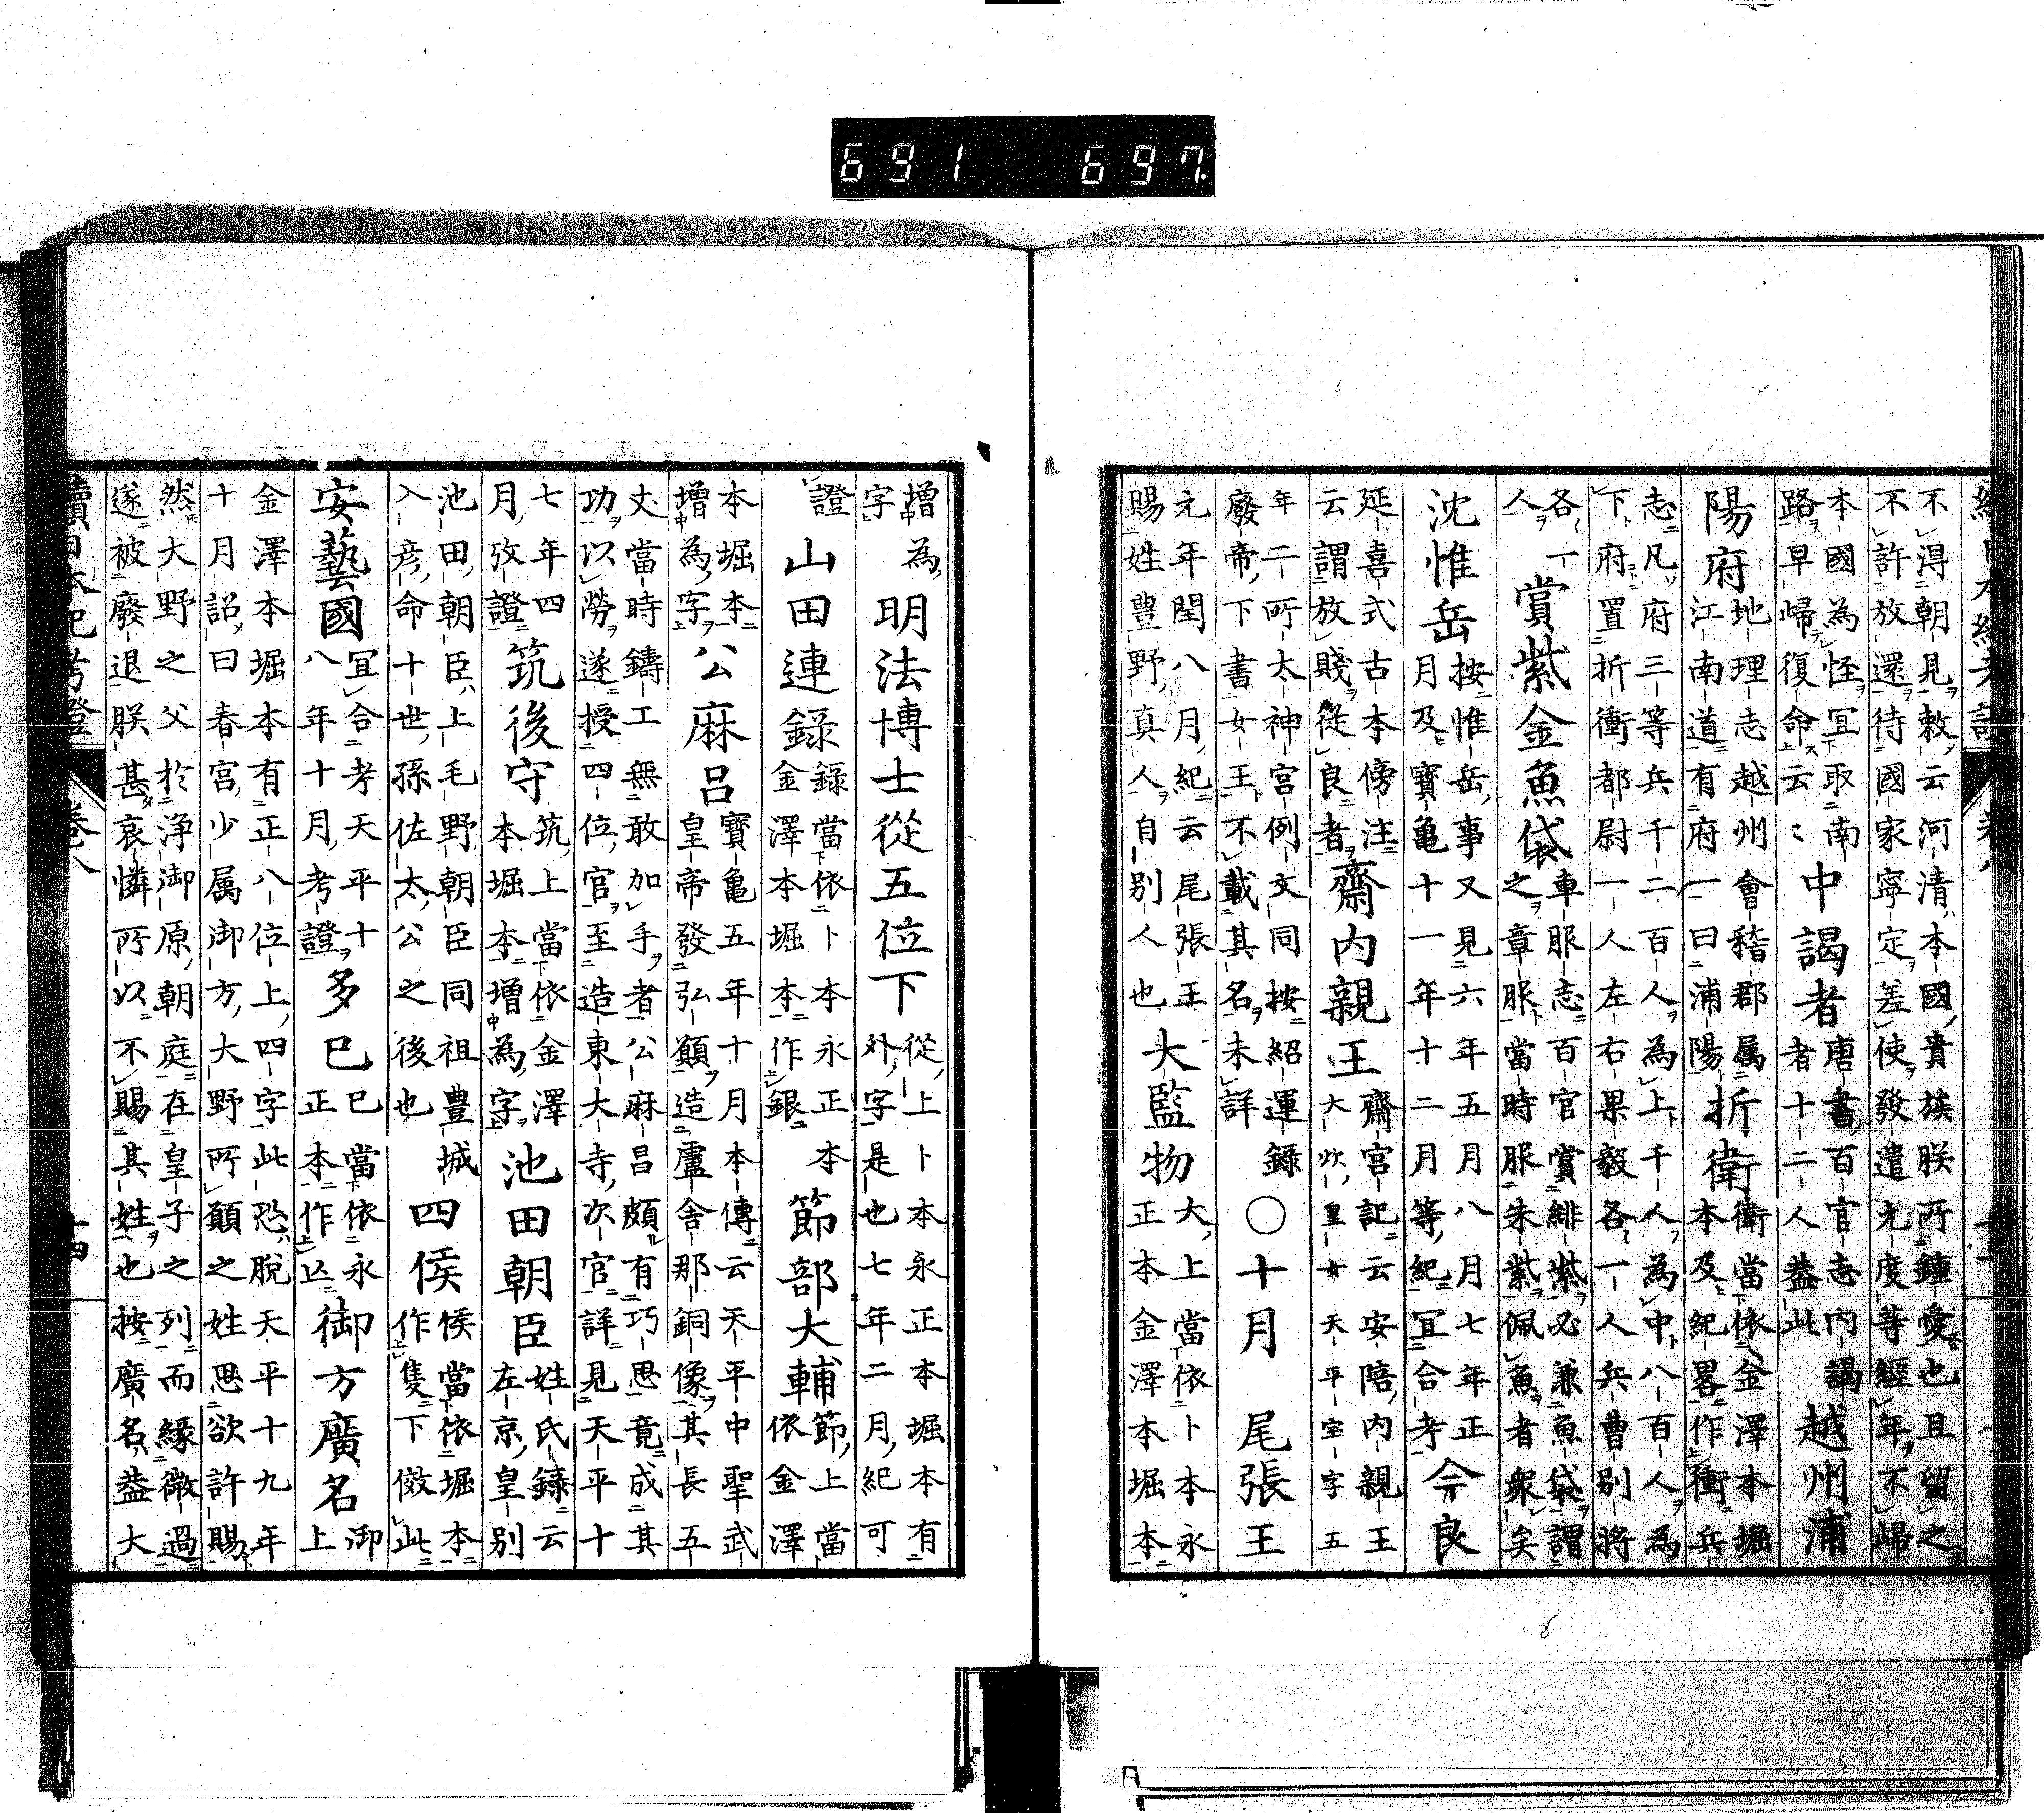 不得朝見敕云河清本國貴族朕所鍾愛也且留之
不許放還待國家寧定差使發遣元度等經年不歸
本國為怪宜取南
路早歸復命云〻
中謁者
唐書百官志内謁
者十二人葢此
越州浦
陽府
地理志越州會稽郡属
江南道有府一曰浦陽
折衛
衛當依金澤本堀
本及紀畧作衝兵
志凡府三等兵千二百人為上千人為中八百人為
下府置折衝都尉一人左右果毅各一人兵曹別將
各一
人
賞紫金魚袋
車服志百官賞緋紫必兼魚袋謂
之章服當時服朱紫佩魚者衆矣
沈惟岳
按惟岳事又見六年五月八月七年正
月及寶亀十一年十二月等紀宜合考
今良
延喜式古本傍注
云謂放賤從良者
齋内親王
齋宮記云安陪内親王
大炊皇女天平宝字五
年二所太神宮例文同按紹運録
廢帝下書女王不載其名未詳
○十月
尾張王
元年閏八月紀云尾張王
賜姓豊野真人自別人也
大監物
大上當依卜本永
正本金澤本堀本
增為
字
明法博士從五位下
從上卜本永正本堀本有
外字是也七年二月紀可
證
山田連録
録當依卜本永正本
金澤本堀本作銀
節部大輔
節上當
依金澤
本堀本
增為字
公麻呂
寶亀五年十月本傳云天平中聖武
皇帝發弘願造盧舎那銅像其長五
丈當時鑄工無敢加手者公麻呂頗有巧思竟成其
功以勞遂授四位官至造東大寺次官詳見天平十
七年四
月攷證
筑後守
筑上當依金澤
本堀本增為字
池田朝臣
姓氏録云
左京皇別
池田朝臣上毛野朝臣同祖豊城
入彦命十世孫佐太公之後也
四侯
侯當依堀本
作隻下傚此
安藝國
宜合考天平十
八年十月考證
多巳
巳當依永
正本作亾
御方廣名
御
上
金澤本堀本有正八位上四字此恐脱天平十九年
十月詔曰春宮少属御方大野所願之姓思欲許賜
然大野之父於浄御原朝庭在皇子之列而緣微過
遂被廢退朕甚哀憐所以不賜其姓也按廣名葢大
續日本紀考證
卷八
十四